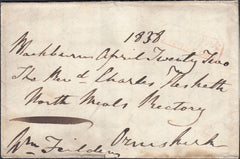 1838
Blackburn April Twenty Two
The Revd Charles Hesketh
North Meols Rectory
Ormskirk
Wm Feilden